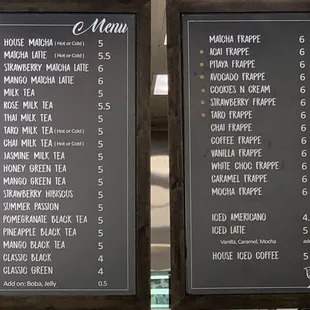 Menu
HOUSE MATCHA (Hot or Cold) 5
MATCHA LATTE (Hot or Cold) 5.5
STRAWBERRY MATCHA LATTE 6
MANGO MATCHA LATTE 6
MILK TEA 5
ROSE MILK TEA 5.5
THAI MILK TEA 5
TARO MILK TEA (Hot or Cold) 5
CHAI MILK TEA (Hot or Cold) 5
JASMINE MILK TEA 5
HONEY GREEN TEA 5
MANGO GREEN TEA 5
STRAWBERRY HIBISCUS 5
SUMMER PASSION 5
POMEGRANATE BLACK TEA 5
PINEAPPLE BLACK TEA 5
MANGO BLACK TEA 5
CLASSIC BLACK 4
CLASSIC GREEN 4
Add on: Boba, Jelly 0.5
MATCHA FRAPPE 6
ACAI FRAPPE 6
PITAYA FRAPPE 6
AVOCADO FRAPPE 6
COOKIES N CREAM 6
STRAWBERRY FRAPPE 6
TARO FRAPPE 6
CHAI FRAPPE 6
COFFEE FRAPPE 6
VANILLA FRAPPE 6
WHITE CHOC FRAPPE 6
CARAMEL FRAPPE 6
MOCHA FRAPPE 6
ICED AMERICANO 4.
ICED LATTE 5
Vanilla, Caramel, Mocha
HOUSE ICED COFFEE 5